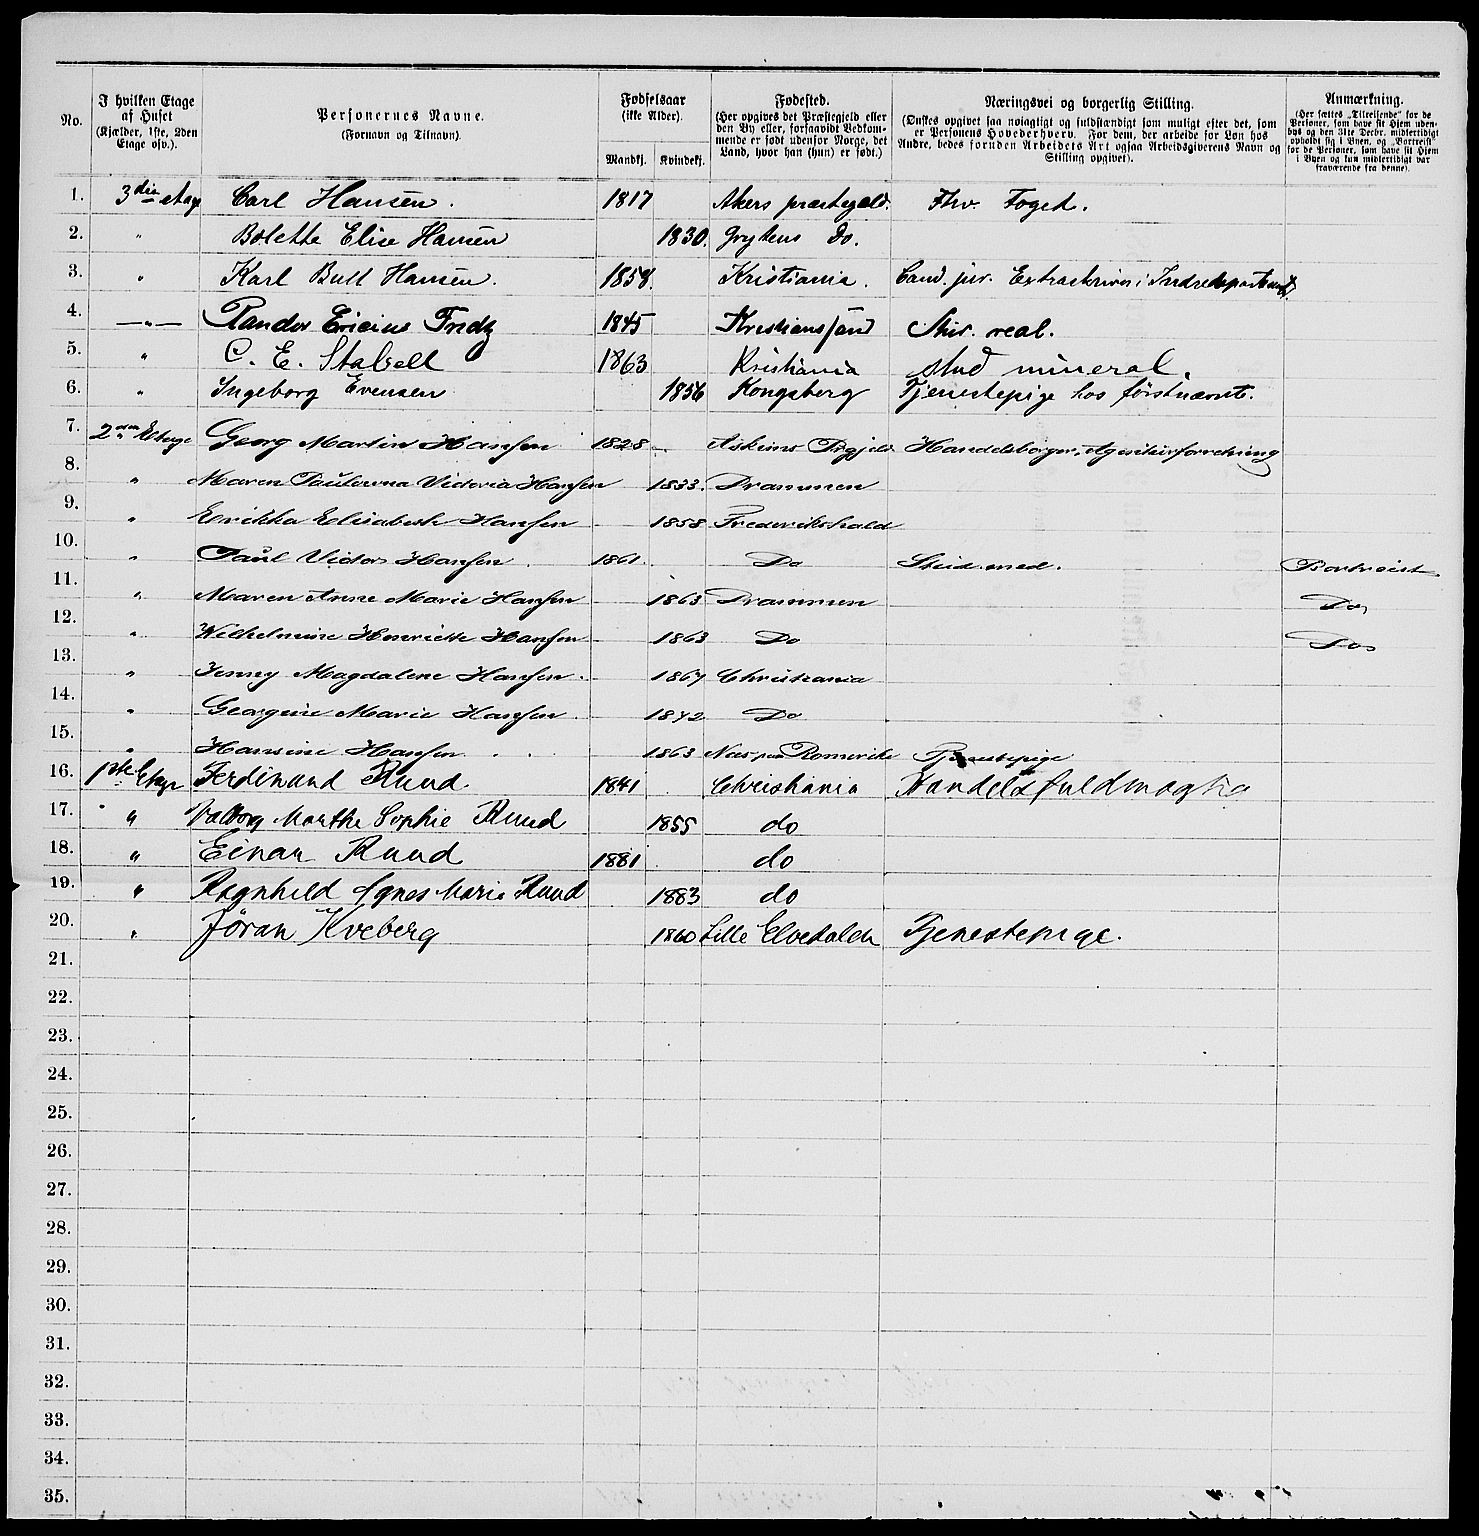 No. | I hvilken Etage af Huset (Kjælder, 1ste, 2den Etage osv.). | Personernes Navne. (Fornavn og Tilnavn). | Fødselsaar (ikke Alder). Mandkj. | Kvindekj. | Fødested. (Her opgives det Præstegjeld eller den By eller, forsaavidt Vedkommende er født udenfor Norge, det Land, hvor han (hun) er født.) | Næringsvei og borgerlig Stilling. (Ønskes opgivet saa nøiagtigt og fuldstændigt som muligt efter det, som er Personens Hovederhverv. For dem, der arbeide for Løn hos Andre, bedes foruden Arbeidets Art ogsaa Arbeidsgiverens Navn og Stilling opgivet). | Anmærkning. (Her sættes „Tilreisende" for de Personer, som have sit Hjem udenbys og den 31te Decbr. midlertidigt opholdt sig i Byen, og „Bortreist" for de Personer, som have sit Hjem i Byen og kun midlertidigt var fraværende fra denne).
1. 3die etage Carl Hansen. 1817 Akers præstegjeld. Fhv. Foged.
2. " Bolette Elise Hansen 1830. Grytens Do.
3. " Karl Bull Hansen. 1858. Kristiania. Cand. jur. Extraskriver i Indredepartementet.
4. —"— Randor Ericius Fredz 1845 Kristianssand Stud. real.
5. " C. E. Stalsell 1863 Kristiania stud mineral.
6. " Ingeborg Evensen 1856 Kongsberg Tjenestepige hos førstnævnte.
7. 2den Etage Georg Martin Hansen 1828 - Askims Prgjeld Handelsborger, Agenturforretning
8. " Maren Paulowna Victoria Hansen 1833. Drammen
9. " Erikka Elisabeth Hansen 1858 Frederikshald
10. " Paul Victor Hansen 1861 Do Stud. med. Bortreist
11. " Maren Anne Marie Hansen 1863 Drammen Do
12. " Wilhelmine Henriette Hansen 1863 Do Do
13. " Jenny Magdalene Hansen. 1867 Christiania
14. " Georgine Marie Hansen. 1872 Do
15. " Hansine Hansen 1863 Næs paa Romerike Tjenestepige
16. 1ste Etage Ferdinand Ruud 1841 Christiania Handelsfuldmægtig
17. " Valborg Marthe Sophie Ruud 1855 do
18. " Einar Ruud 1881 do
19. " Ragnhild Agnes Marie Ruud 1883 do
20. " Jøran Kveberg 1860 Lille Elvedalen Tjenestepige.
21.
22.
23.
24.
25.
26.
27.
28.
29.
30.
31.
32.
33.
34.
35.